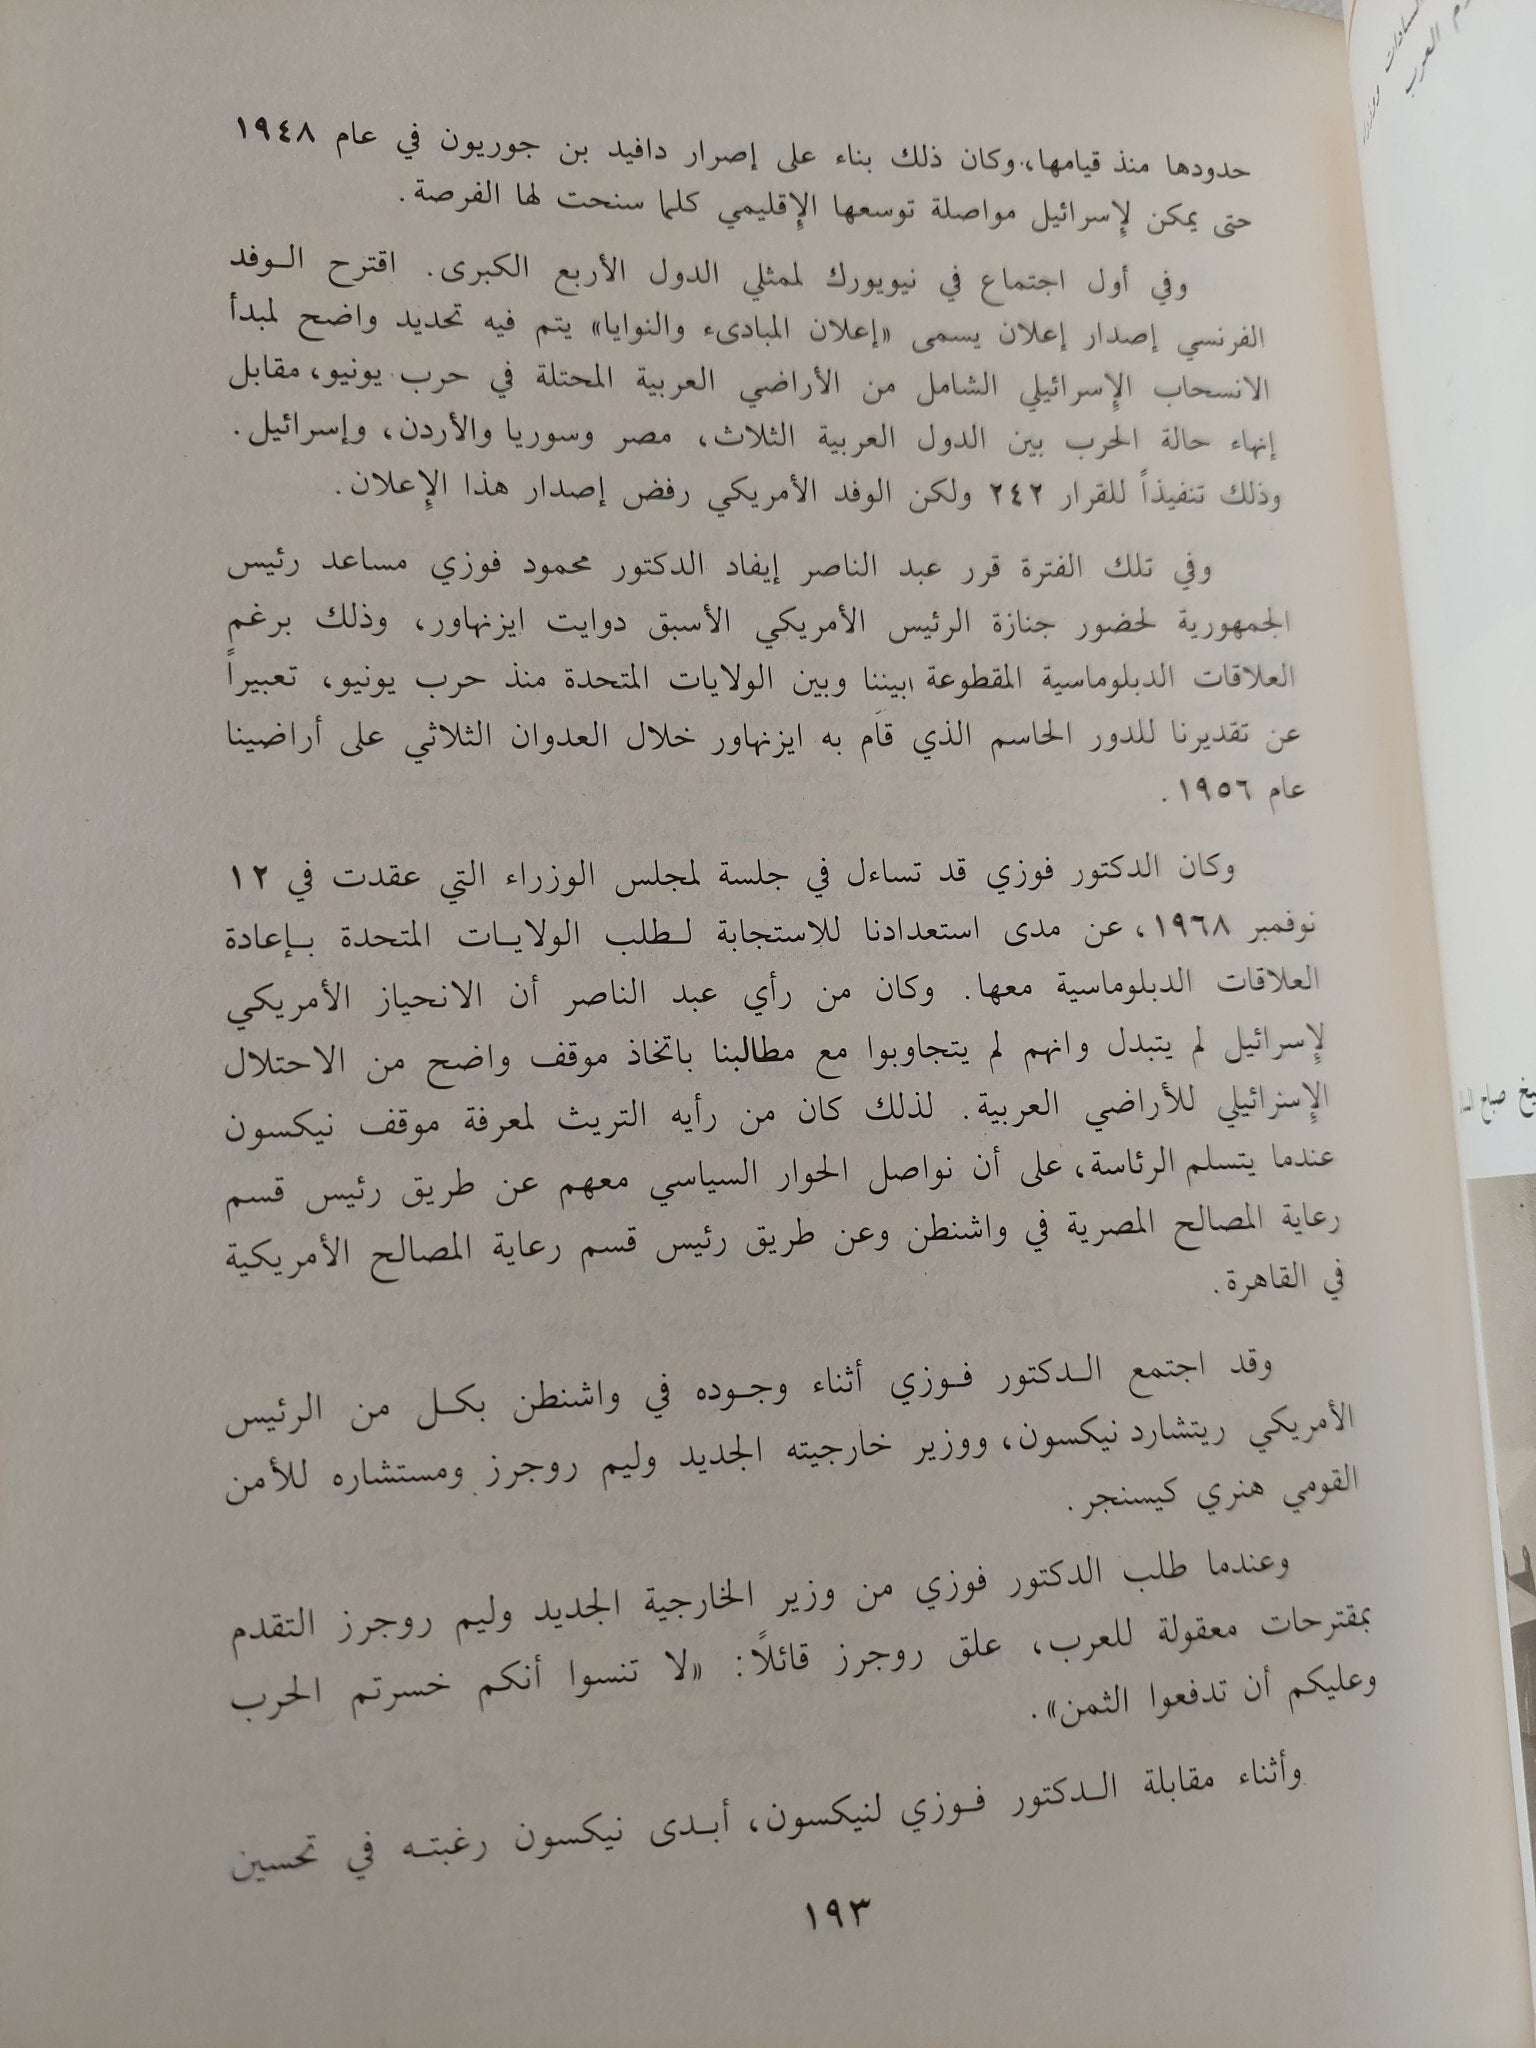 حدودها منذ قيامها، وكان ذلك بناء على إصرار دافيد بن جوريون في عام ١٩٤٨
حتى يمكن لإسرائيل مواصلة توسعها الإقليمي كلما سنحت لها الفرصة.
وفي أول اجتماع في نيويورك لممثلي الدول الأربع الكبرى. اقترح الوفد
الفرنسي إصدار إعلان يسمى «إعلان المبادىء والنوايا» يتم فيه تحديد واضح لمبدأ
الانسحاب الإسرائيلي الشامل من الأراضي العربية المحتلة في حرب يونيو، مقابل
إنهاء حالة الحرب بين الدول العربية الثلاث، مصر وسوريا والأردن، وإسرائيل.
وذلك تنفيذاً للقرار ٢٤٢ ولكن الوفد الأمريكي رفض إصدار هذا الإعلان.
وفي تلك الفترة قرر عبد الناصر إيفاد الدكتور محمود فوزي مساعد رئيس
الجمهورية لحضور جنازة الرئيس الأمريكي الأسبق دوايت ايزنهاور، وذلك برغم
العلاقات الدبلوماسية المقطوعة بيننا وبين الولايات المتحدة منذ حرب يونيو، تعبيراً
عن تقديرنا للدور الحاسم الذي قام به ايزنهاور خلال العدوان الثلاثي على أراضينا
عام ١٩٥٦.
وكان الدكتور فوزي قد تساءل في جلسة لمجلس الوزراء التي عقدت في ١٢
نوفمبر ١٩٦٨، عن مدى استعدادنا للاستجابة لطلب الولايات المتحدة بإعادة
العلاقات الدبلوماسية معها. وكان من رأي عبد الناصر أن الانحياز الأمريكي
لإسرائيل لم يتبدل وانهم لم يتجاوبوا مع مطالبنا باتخاذ موقف واضح من الاحتلال
الإسرائيلي للأراضي العربية. لذلك كان من رأيه التريث لمعرفة موقف نيكسون
عندما يتسلم الرئاسة، على أن نواصل الحوار السياسي معهم عن طريق رئيس قسم
رعاية المصالح المصرية في واشنطن وعن طريق رئيس قسم رعاية المصالح الأمريكية
في القاهرة.
وقد اجتمع الدكتور فوزي أثناء وجوده في واشنطن بكل من الرئيس
الأمريكي ريتشارد نيكسون، ووزير خارجيته الجديد وليم روجرز ومستشاره للأمن
القومي هنري كيسنجر.
وعندما طلب الدكتور فوزي من وزير الخارجية الجديد وليم روجرز التقدم
بمقترحات معقولة للعرب، علق روجرز قائلاً: «لا تنسوا أنكم خسرتم الحرب
وعليكم أن تدفعوا الثمن».
وأثناء مقابلة الدكتور فوزي لنيكسون، أبدى نيكسون رغبته في تحسين
١٩٣
السادات
العرب
صباح